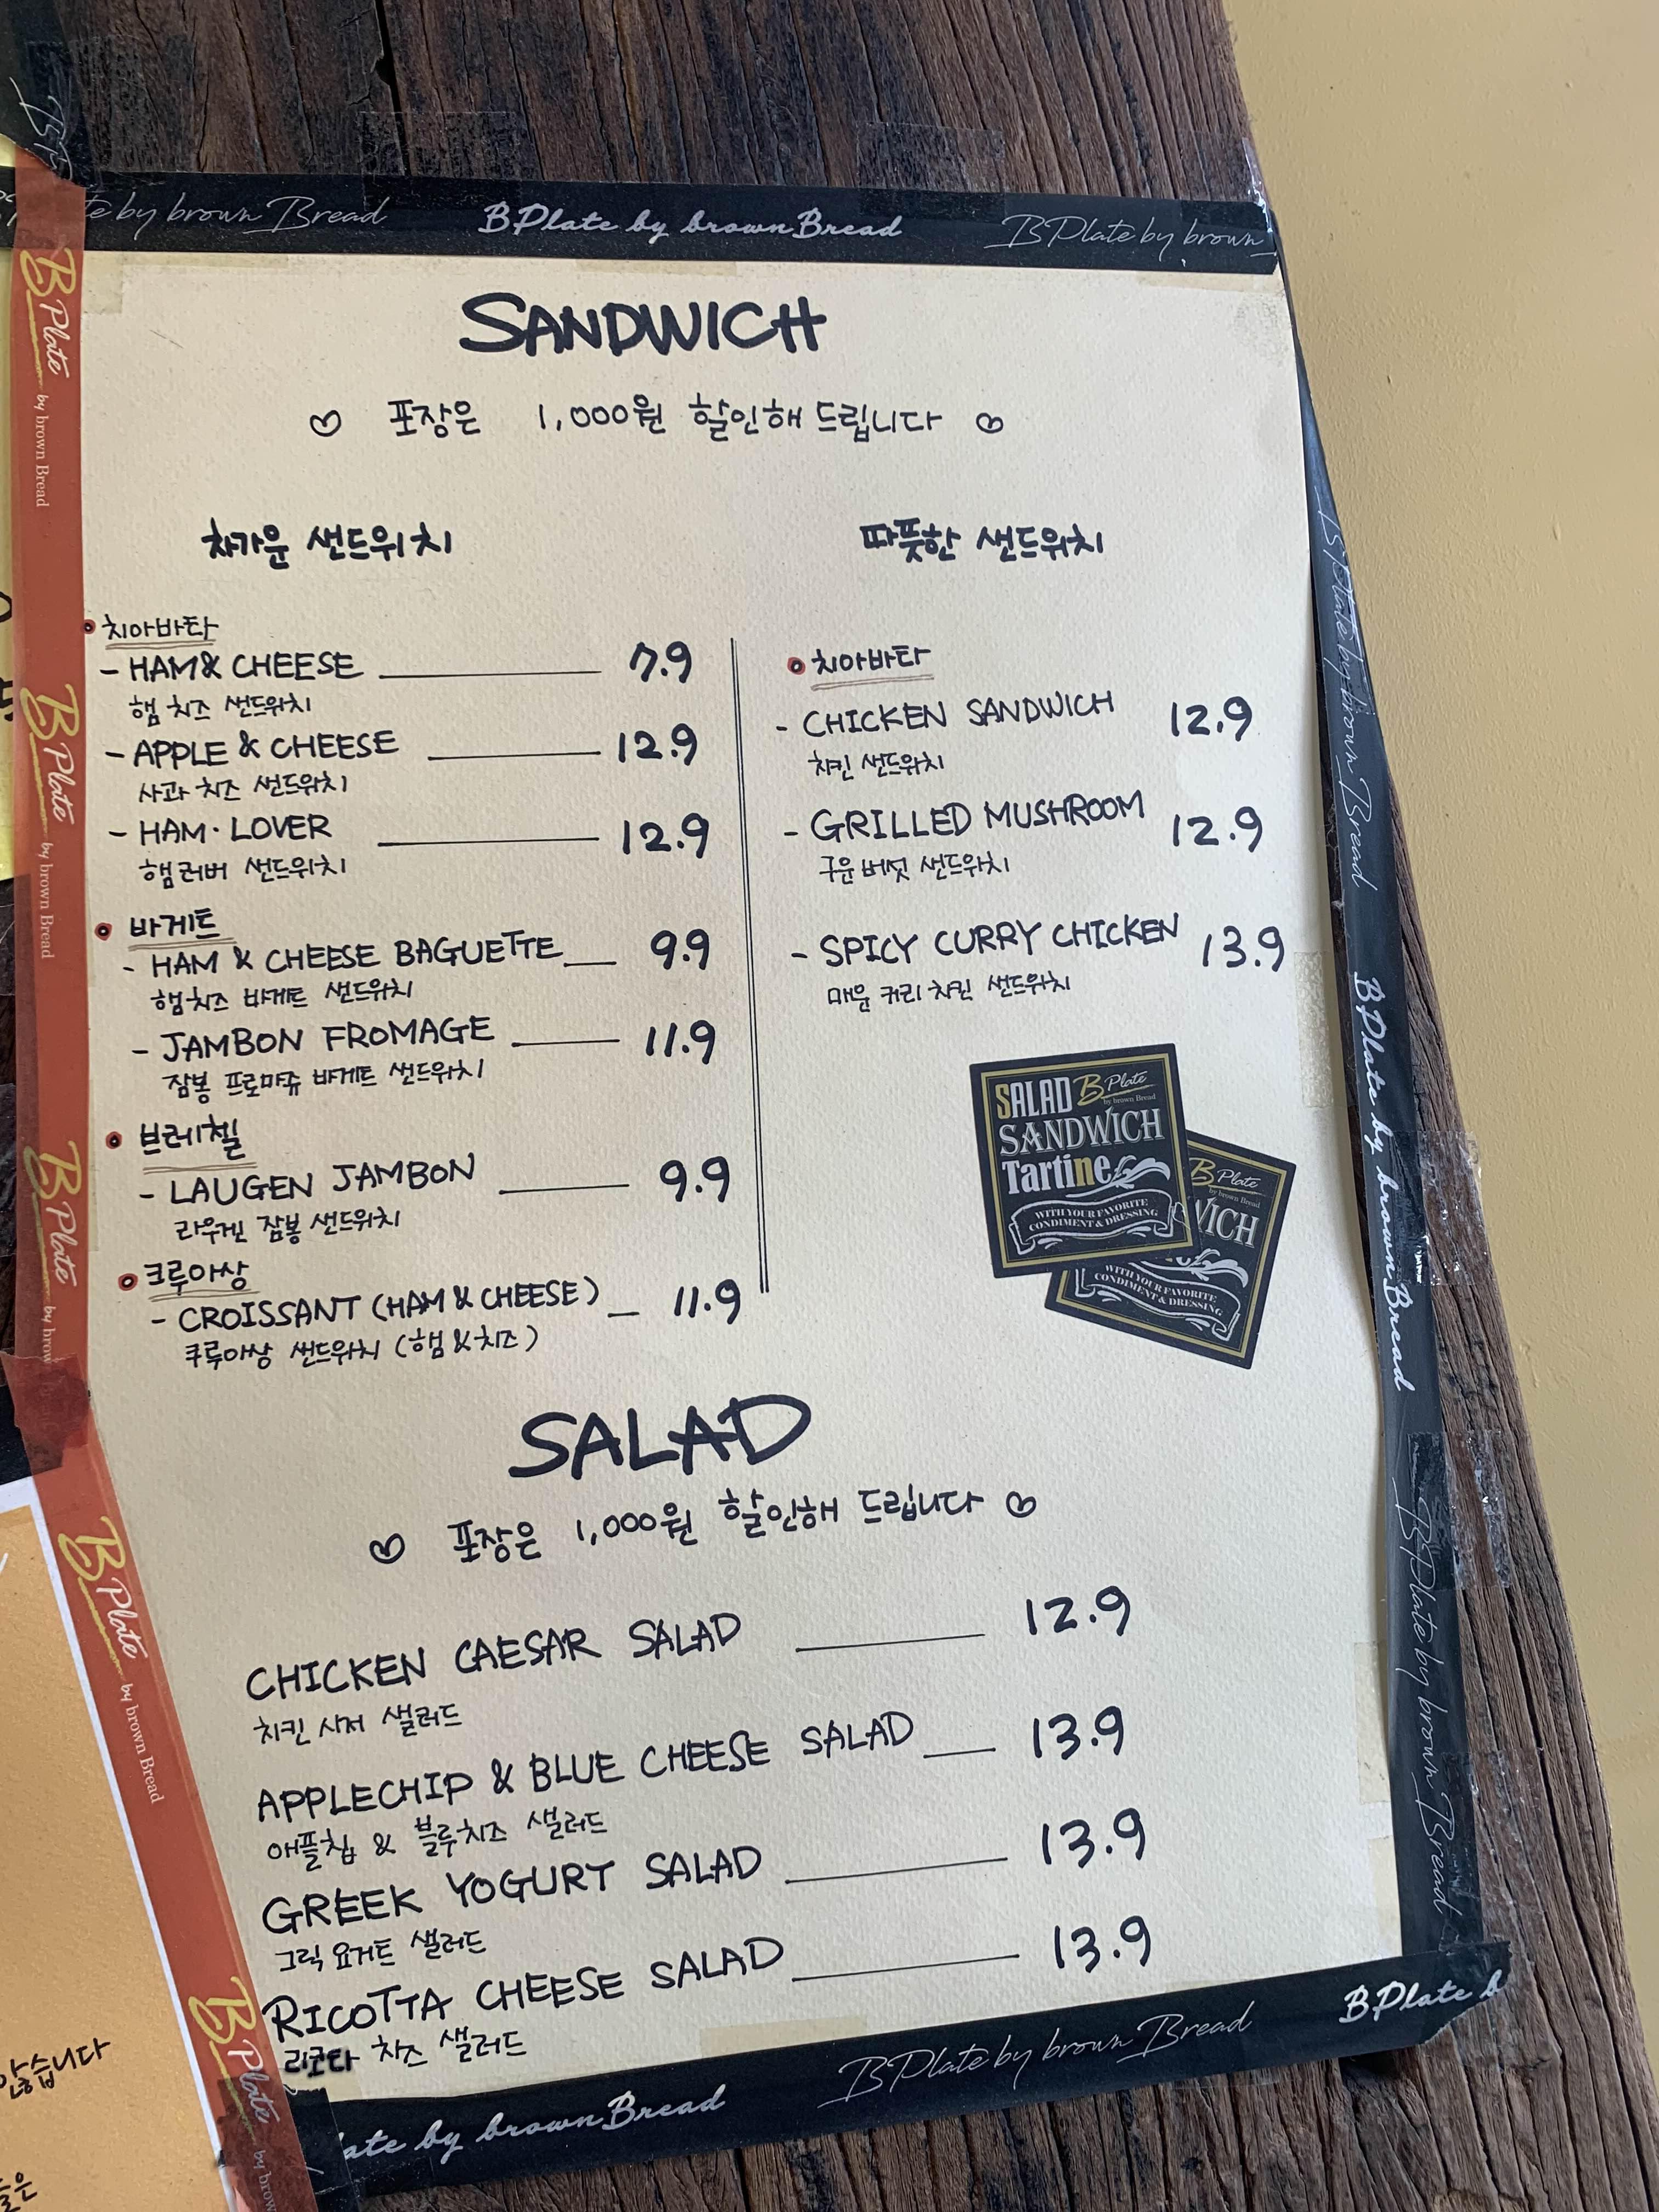 BPlate by brown Bread BPlate by brown
SANDWICH
포장은 1,000원 할인해 드립니다
차가운 샌드위치
치아바타
- HAM & CHEESE 7.9
햄 치즈 샌드위치
- APPLE & CHEESE 12.9
사과 치즈 샌드위치
- HAM · LOVER 12.9
햄러버 샌드위치
바게트
- HAM & CHEESE BAGUETTE 9.9
햄치즈 바게트 샌드위치
- JAMBON FROMAGE 11.9
잠봉 프로마쥬 바게트 샌드위치
브레첼
- LAUGEN JAMBON 9.9
라우겐 잠봉 샌드위치
크루아상
- CROISSANT (HAM & CHEESE) 11.9
크루아상 샌드위치 (햄 & 치즈)
따뜻한 샌드위치
치아바타
- CHICKEN SANDWICH 12.9
치킨 샌드위치
- GRILLED MUSHROOM 12.9
구운 버섯 샌드위치
- SPICY CURRY CHICKEN 13.9
매운 커리 치킨 샌드위치
SALAD B Plate
by brown Bread
SANDWICH
Tartine
WITH YOUR FAVORITE
CONDIMENT & DRESSING
B Plate
by brown Bread
WICH
WITH YOUR FAVORITE
CONDIMENT & DRESSING
SALAD
포장은 1,000원 할인해 드립니다
CHICKEN CAESAR SALAD 12.9
치킨 시저 샐러드
APPLECHIP & BLUE CHEESE SALAD 13.9
애플칩 & 블루치즈 샐러드
GREEK YOGURT SALAD 13.9
그릭 요거트 샐러드
RICOTTA CHEESE SALAD 13.9
리코타 치즈 샐러드
by brown Bread BPlate by brown Bread BPlate
B Plate by brown Bread
B Plate by brown Bread
B Plate by
B Plate by brown Bread
B Plate by
BPlate by brown Bread
BPlate by brown Bread
BPlate by brown Bread
않습니다